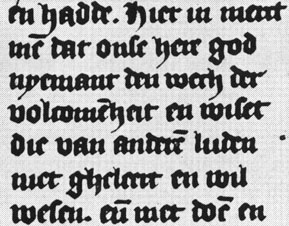 en hadde. Hier in merct
mē dat onse here god
nyemant den wech der
volcomēheit en wiset
die van anderē luden
niet gheleert en wil
wesen. eñ met dōē en